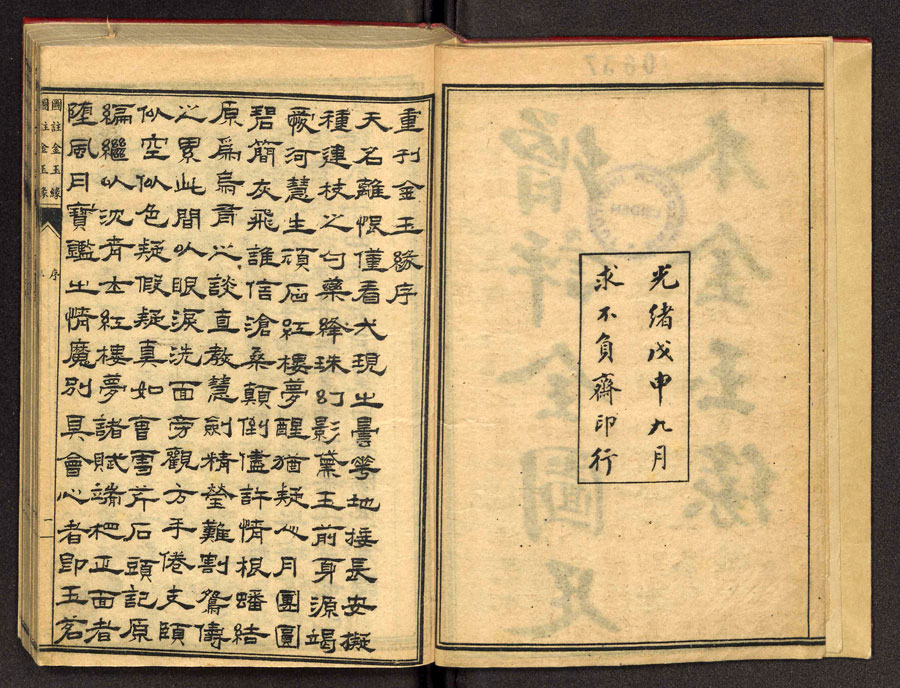 光緒戊申九月
求不負齋印行
重刊金玉緣序
天名離恨僅看大現之曇花地接長安擬
種連枝之句藥絳珠幻影黛玉前身源竭
厥河慧生頑石紅樓夢醒猶疑心月團圓
碧簡灰飛誰信滄桑顛倒儘許情根蟠結
原爲烏有之談直教慧劍精瑩難割鴛儔
之累此間以眼淚洗面旁觀方手倦支頤
似空似色疑假疑真如會雪芹石頭記原
編繼以沉青士紅樓夢諸賦端杷正面者
陸風月寶鑑之情魔別具會心者卽玉茗
圖註金玉緣
序
一